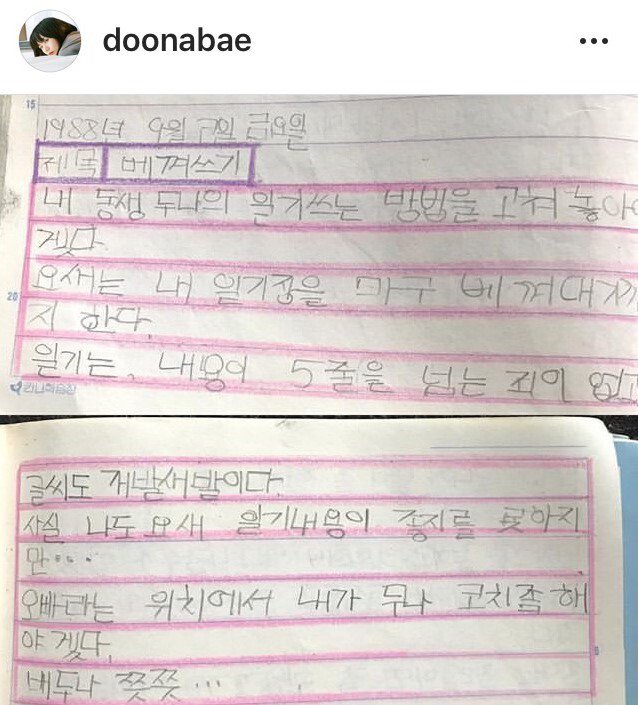 doonabae
15
1988년 9월 금요일
제목 베껴쓰기
내 동생 두나의 일기쓰는 방법을 고쳐 놓아야
겟다
요새는 내 일기장을 마구 베껴대기까
20
지 한다.
일기는, 내용이 5줄을 넘는 적이 없고
글씨도 개발새발이다.
사실 나도 요새 일기내용이 좋지를 못하지
만…
오빠라는 위치에서 내가 두나 코치좀 해
야겟다.
배두나 쯧쯧…